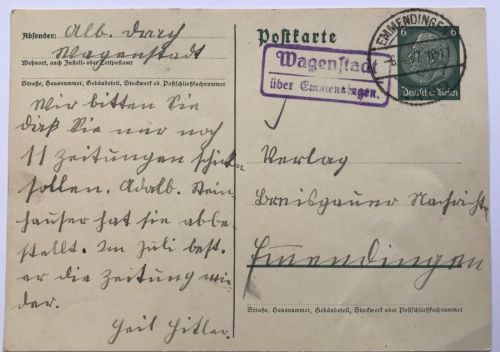 Absender: Alb. Dorch
Wagenstadt
Wohnort, auch Zustell- oder Leitpostamt
Straße, Hausnummer, Gebäudeteil, Stockwerk od. Postschließfachnummer
Wir bitten Sie
daß Sie nur noch
11 Zeitungen schicken
sollen. Adalb. Stein-
hauser hat sie abbe-
stellt. Im Juli best.
er die Zeitung wie-
der.
Heil Hitler.
Postkarte
Wagenstadt
über Emmendingen.
EMMENDINGEN
6 6
Deutsches Reich
Verlag
Breisgauer Nachricht
Emmendingen
Straße, Hausnummer, Gebäudeteil, Stockwerk oder Postschließfachnummer